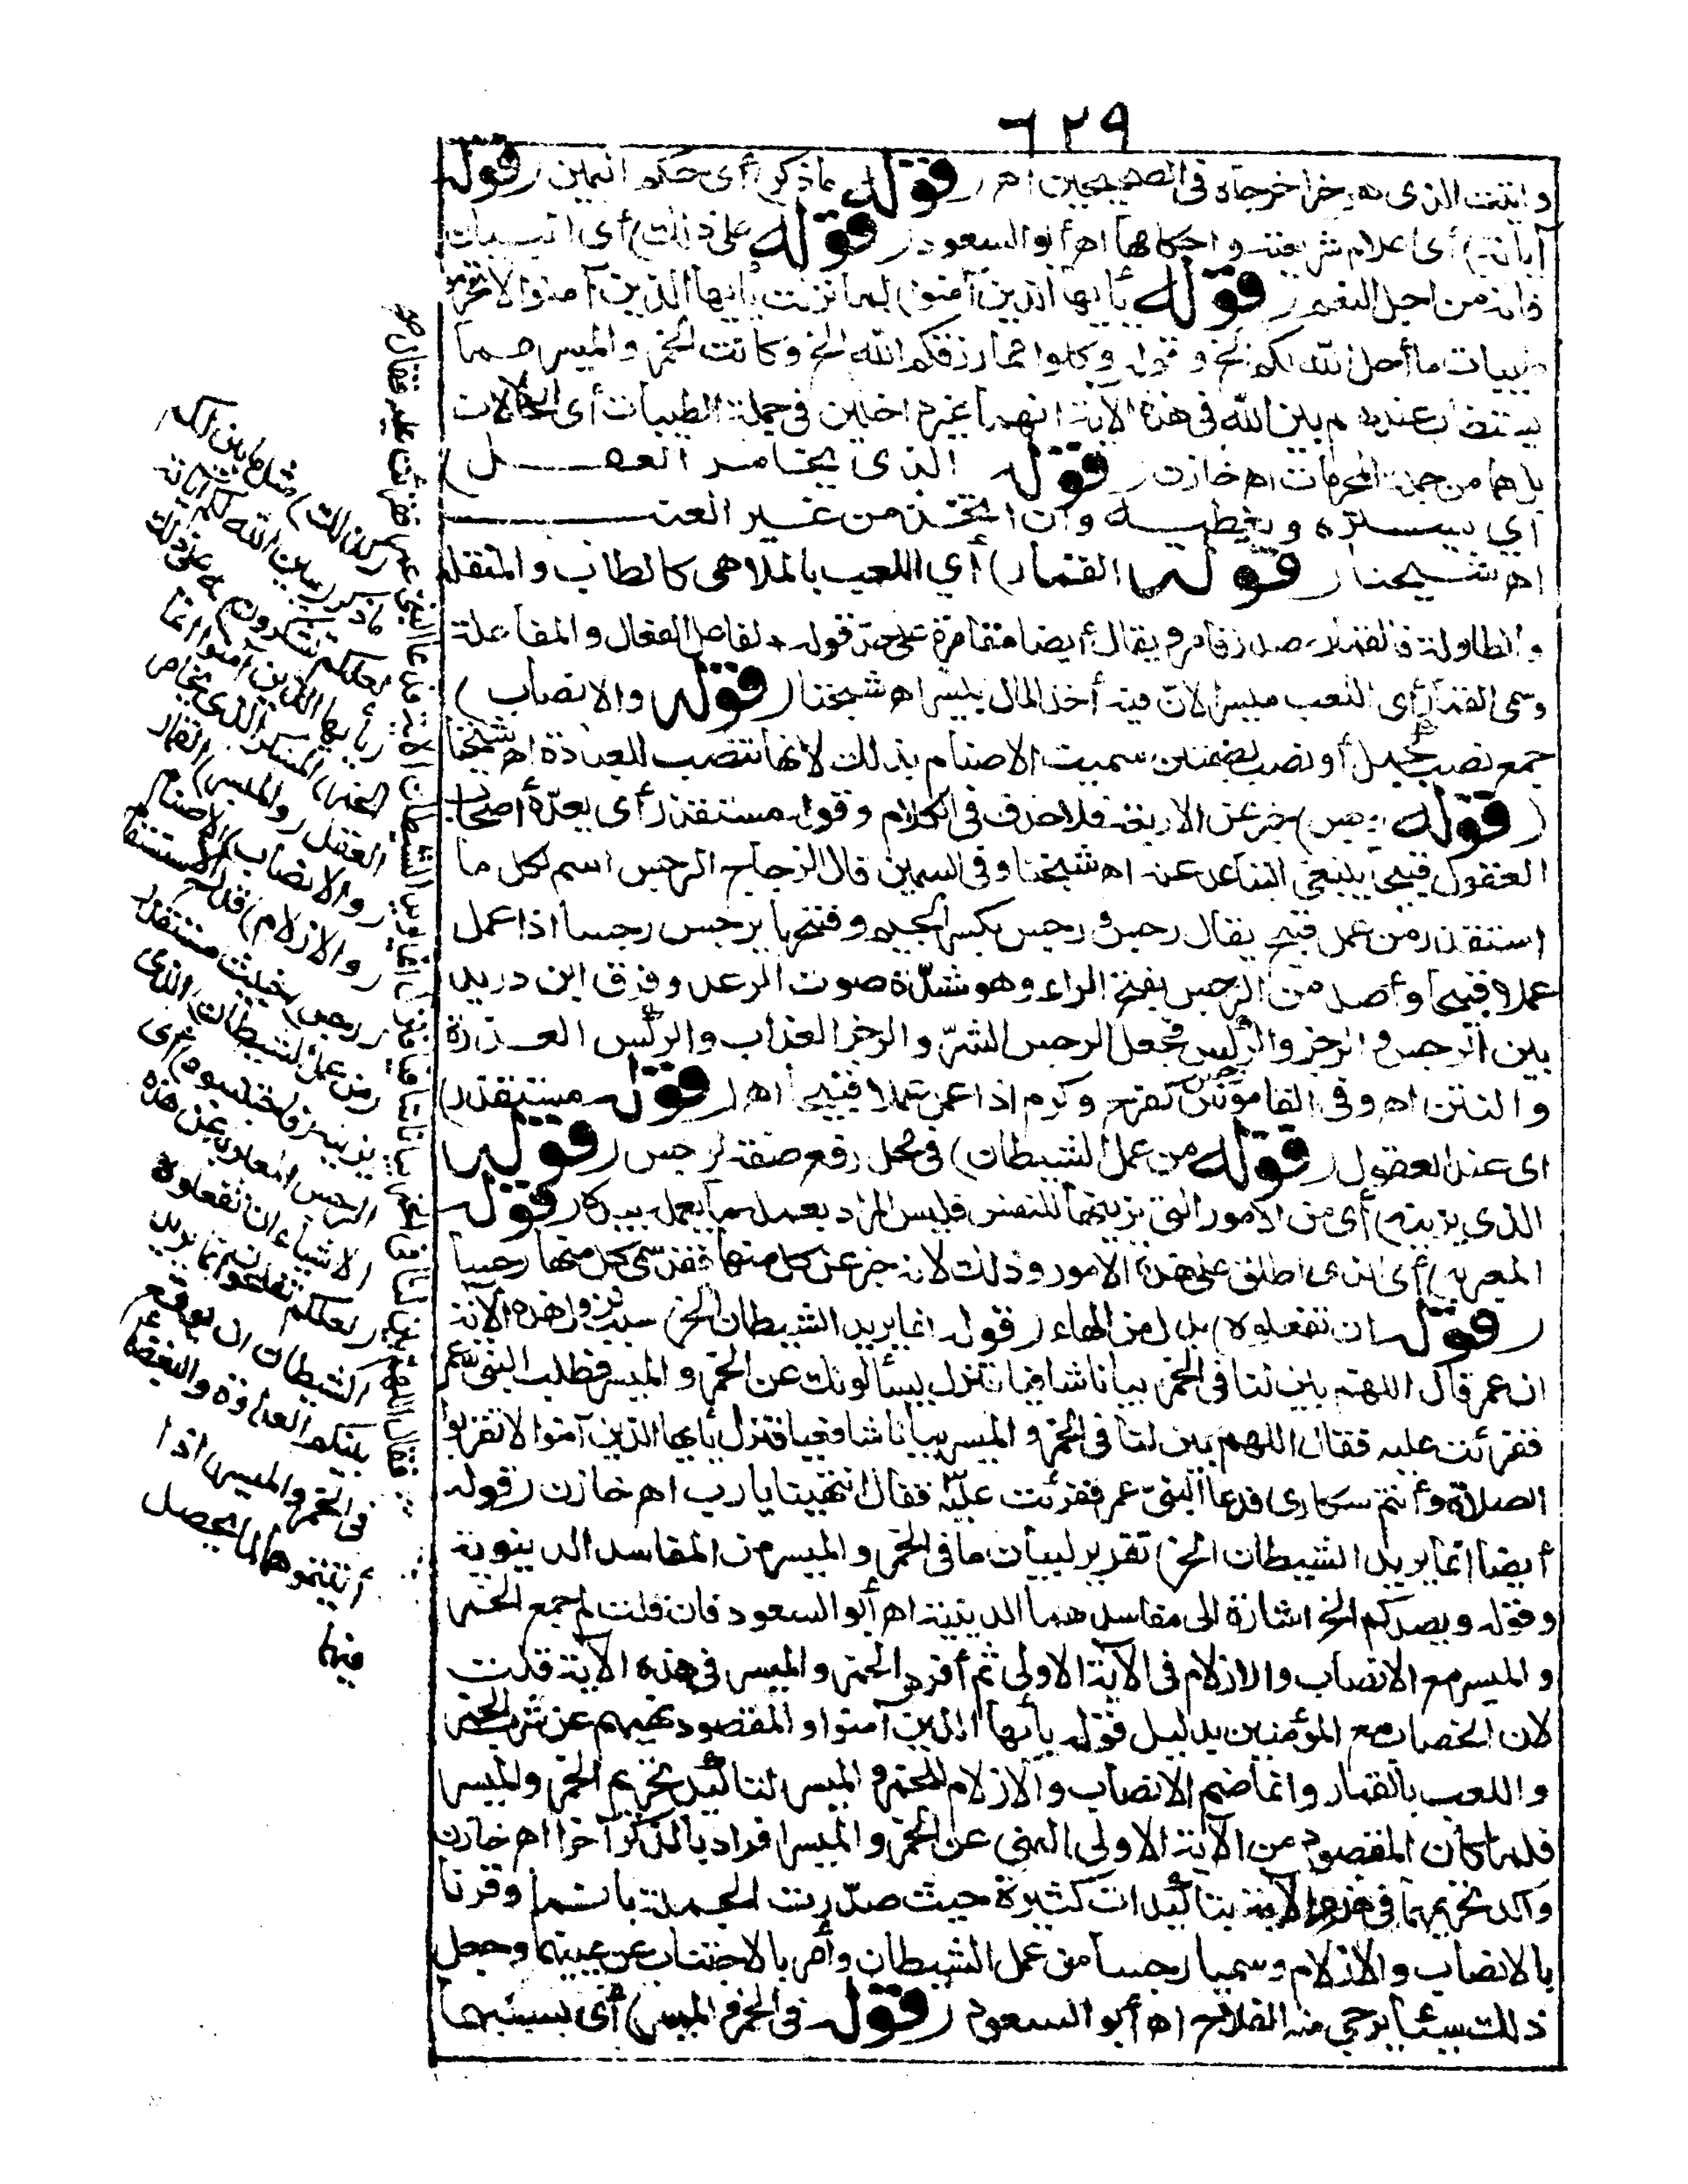 ٦٢٩
وائتت الذى هو خيرا خرجاه فى الصحيحين اهـ (قوله ما ذكر) أى حكم اليمين (قوله
آياته) أى اعلام شريعته واحكامها اهـ أبو السعود (قوله على ذلك) أى التبيان
فانه من اجل النعم (قوله يأيها الذين آمنوا) لما نزلت يأيها الذين آمنوا لا تحرموا
طيبات ما أحل الله لكم الخ وقوله وكلوا مما رزقكم الله الخ وكانت الخمر والميسر مما
يستطاب عندهم بين الله فى هذه الآية انهما غير داخلين فى جملة الطيبات أى الحلالات
بل هما من جملة المحرمات اهـ خازن (قوله الذى يخامر العقل)
أى يستره ويغطيه وان اتخذ من غير العنب
اهـ شيخنا (قوله القمار) أى اللعب بالملاهى كالطاب والمنقلة
والطاولة فالقمار مصدر قامر ويقال أيضا مقامرة على حد قوله * لفاعل الفعال والمفاعلة
وسمى القمار أى اللعب ميسرا لانّ فيه أخذ المال بيسر اهـ شيخنا (قوله والانصاب)
جمع نصب كجمل أو نصب بضمتين سميت الاصنام بذلك لانها تنصب للعبادة اهـ شيخنا
(قوله رجس) خبر عن الاربعة فلا حذف فى الكلام وقوله مستقذر أى يعدّه أصحاب
العقول قبيحا ينبغى التباعد عنه اهـ شيخنا وفى السمين قال الزجاج الرجس اسم لكل ما
استقذر من عمل قبيح يقال رجس ورجس بكسر الجيم وفتحها يرجس رجسا اذا عمل
عملا قبيحا وأصله من الرجس بفتح الراء وهو شدّة صوت الرعد وفرق ابن دريد
بين الرجس والرجز والركس فجعل الرجس الشرّ والرجز العذاب والركس العذرة
والنتن اهـ وفى القاموس رجس كفرح وكرم اذا عمل عملا قبيحا اهـ (قوله مستقذر)
اى عند العقول (قوله من عمل الشيطان) فى محل رفع صفة لرجس (قوله
الذى يزينه) أى من الامور التى يزينها للنفس فليس المراد بعمله ما يعمل بيده (قوله
المعبر به) أى الذى اطلق على هذه الامور وذلك لانه خبر عن كل منها فقد سمى كل منها رجسا
(قوله ان تفعلوه) بدل من الهاء (قوله انما يريد الشيطان الخ) سبب نزول هذه الآية
ان عمر قال اللهم بين لنا فى الخمر بيانا شافيا فنزل يسألونك عن الخمر والميسر فطلب النبى عمر
فقرئت عليه فقال اللهم بين لنا فى الخمر والميسر بيانا شافيا فنزل يأيها الذين آمنوا لا تقربوا
الصلاة وأنتم سكارى فدعا النبىّ عمر فقرئت عليه فقال انتهينا يا رب اهـ خازن (قوله
أيضا انما يريد الشيطان الخ) تقرير لبيان ما فى الخمر والميسر من المفاسد الدينوية
وقوله ويصدكم الخ اشارة الى مفاسدهما الدينية اهـ أبو السعود فان قلت لم جمع الخمر
والميسر مع الانصاب والازلام فى الآية الاولى ثم أفرد الخمر والميسر فى هذه الآية قلت
لان الخطاب مع المؤمنين بدليل قوله يأيها الذين آمنوا والمقصود نهيهم عن شرب الخمر
واللعب بالقمار وانما ضم الانصاب والازلام للخمر والميسر لتأكيد تحريم الخمر والميسر
فلما كان المقصود من الآية الاولى النهى عن الخمر والميسر افردا بالذكر آخرا اهـ خازن
واكد تحريمهما فى هذه الآية بتأكيدات كثيرة حيث صدّرت الجملة بانما وقرنا
بالانصاب والازلام وسميا رجسا من عمل الشيطان وأمر بالاجتناب عن عينهما وجعل
ذلك سببا يرجى منه الفلاح اهـ أبو السعود (قوله فى الخمر والميسر) أى بسببهما
(كذلك) مثل ما بين لكم
ما ذكر (يبين الله لكم آياته
لعلكم تشكرون) على ذلك
(يأيها الذين آمنوا انما
الخمر) المسكر الذى يخامر
العقل (والميسر) القمار
(والانصاب) الاصنام
(والازلام) قداح الاستقسام
(رجس) خبيث مستقذر
(من عمل الشيطان) الذى
يزينه (فاجتنبوه) أى
الرجس المعبر به عن هذه
الاشياء ان تفعلوه
(لعلكم تفلحون انما يريد
الشيطان ان يوقع
بينكم العداوة والبغضاء
فى الخمر والميسر) اذا
أتيتموهما لما يحصل
فيهما